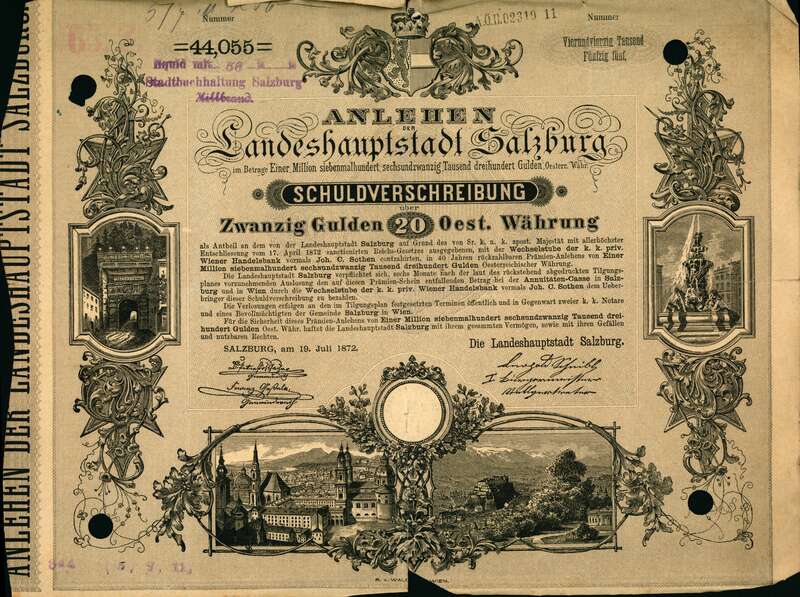 Nummer
=44,055=
liquid mit 58
Stadtbuchhaltung Salzburg
Nummer
Vierundvierzig Tausend
Fünfzig fünf.
ANLEHEN
DER
Landeshauptstadt Salzburg
im Betrage Einer Million siebenmalhundert sechsundzwanzig Tausend dreihundert Gulden Oesterr. Währ.
SCHULDVERSCHREIBUNG
über
Zwanzig Gulden 20 Oest. Währung
als Antheil an dem von der Landeshauptstadt Salzburg auf Grund des von Sr. k. u. k. apost. Majestät mit allerhöchster
Entschliessung vom 17. April 1872 sanctionirten Reichs-Gesetzes ausgegebenen, mit der Wechselstube der k. k. priv.
Wiener Handelsbank vormals Joh. C. Sothen contrahirten, in 40 Jahren rückzahlbaren Prämien-Anlehens von Einer
Million siebenmalhundert sechsundzwanzig Tausend dreihundert Gulden Oesterreichischer Währung.
Die Landeshauptstadt Salzburg verpflichtet sich, sechs Monate nach der laut des rückstehend abgedruckten Tilgungs-
planes vorzunehmenden Auslosung den auf diesen Prämien-Schein entfallenden Betrag bei der Annuitäten-Casse in Salz-
burg und in Wien durch die Wechselstube der k. k. priv. Wiener Handelsbank vormals Joh. C. Sothen dem Ueber-
bringer dieser Schuldverschreibung zu bezahlen.
Die Verlosungen erfolgen an den im Tilgungsplan festgesetzten Terminen öffentlich und in Gegenwart zweier k. k. Notare
und eines Bevollmächtigten der Gemeinde Salzburg in Wien.
Für die Sicherheit dieses Prämien-Anlehens von Einer Million siebenmalhundert sechsundzwanzig Tausend drei-
hundert Gulden Oest. Währ. haftet die Landeshauptstadt Salzburg mit ihrem gesammten Vermögen, sowie mit ihren Gefällen
und nutzbaren Rechten.
SALZBURG, am 19. Juli 1872.
Die Landeshauptstadt Salzburg.
Gemeinderath
I Bürgermeister
ANLEHEN DER LANDESHAUPTSTADT SALZBURG